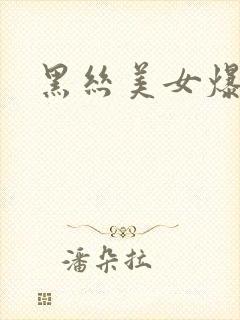 黑絲美女爆
潘朵拉